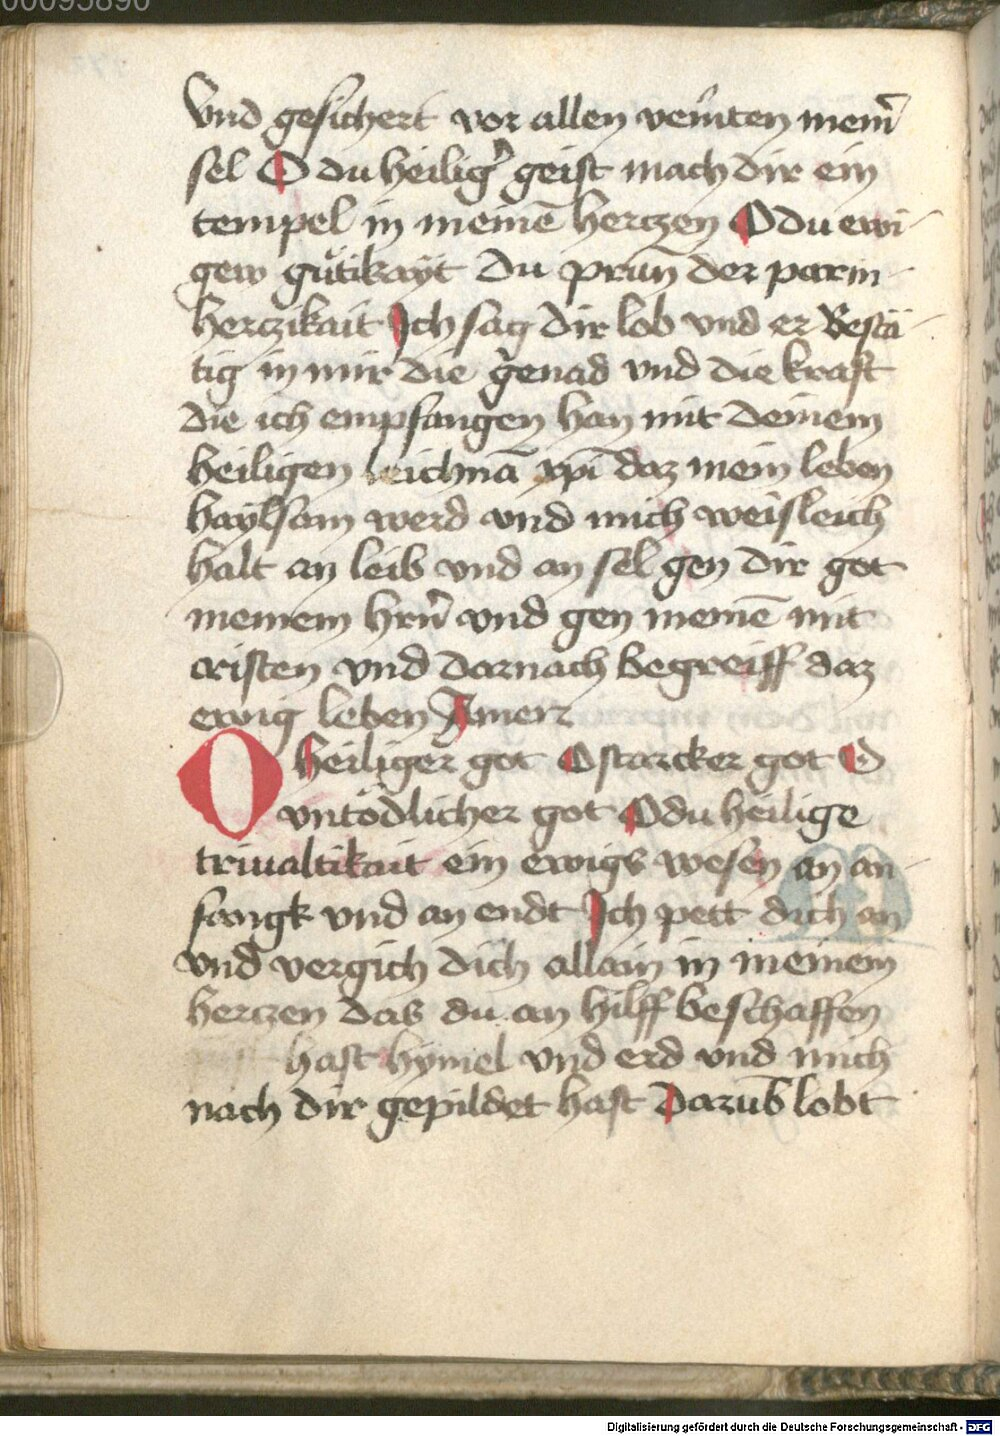 00095890
vnd gesichert vor allen veinten meinr̄
sel O du heiliger geist mach dir ein
tempel in meinē herczen O du ewi-
gew gütikayt du prun̄ der parm-
herczikait Ich sag dir lob vnd er Bestä-
tig in mir die genad vnd die kraft
die ich empfangen han mit deinem
heiligen leichnā xp̄i daz mein leben
haylsam werd vnd mich weisleich
halt an leib vnd an sel gen dir got
meinem hrn̄ vnd gen meinē mit
cristen vnd darnach begreiff daz
ewig leben Amen
O heiliger got O starcker got O
vntödlicher got O du heilige
triualtikait ein ewigs wesen an an-
fangk vnd an endt Ich pett dich an
vnd vergich dich allain in meinem
herczen das du an hilff beschaffen
hast hymel vnd erd vnd mich
nach dir gepildet hast Darūb lobt
Digitalisierung gefördert durch die Deutsche Forschungsgemeinschaft - DFG